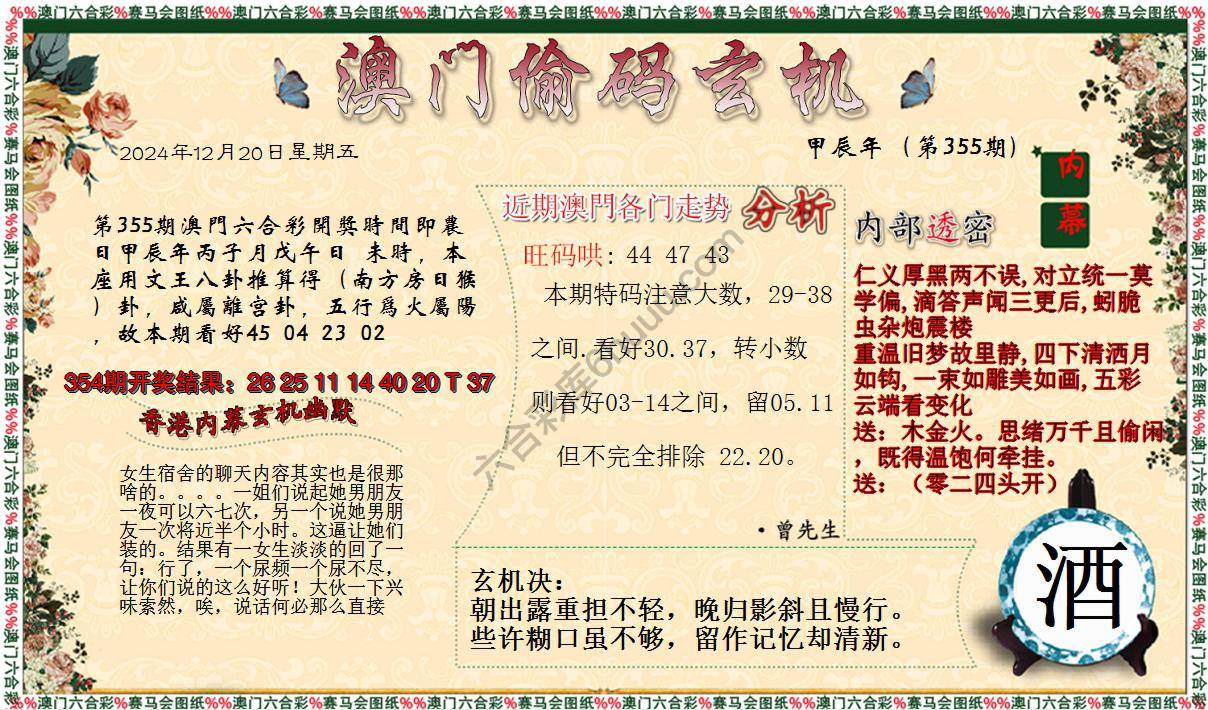 %%澳门六合彩%赛马会图纸%%澳门六合彩%赛马会图纸%%澳门六合彩%赛马会图纸%%澳门六合彩%赛马会图纸%%澳门六合彩%赛马会图纸%%澳门六合彩%赛马会图纸%%
澳门偷码玄机
2024年12月20日星期五
甲辰年（第355期）
内
幕
第355期澳門六合彩開獎時間即農
日甲辰年丙子月戊午日 未時，本
座用文王八卦推算得（南方房日猴
）卦，咸屬離宫卦，五行爲火屬陽
，故本期看好45 04 23 02
354期开奖结果：26 25 11 14 40 20 T 37
香港内幕玄机幽默
女生宿舍的聊天内容其实也是很那
啥的。。。。一姐们说起她男朋友
一夜可以六七次，另一个说她男朋
友一次将近半个小时。这逼让她们
装的。结果有一女生淡淡的回了一
句：行了，一个尿频一个尿不尽，
让你们说的这么好听！大伙一下兴
味索然，唉，说话何必那么直接
近期澳門各门走势 分析
旺码哄: 44 47 43
本期特码注意大数，29-38
之间.看好30.37，转小数
则看好03-14之间，留05.11
但不完全排除 22.20。
·曾先生
内部透密
仁义厚黑两不误,对立统一莫
学偏,滴答声闻三更后,蚓脆
虫杂炮震楼
重温旧梦故里静,四下清洒月
如钩,一束如雕美如画,五彩
云端看变化
送：木金火。思绪万千且偷闲
，既得温饱何牵挂。
送：（零二四头开）
玄机决：
朝出露重担不轻，晚归影斜且慢行。
些许糊口虽不够，留作记忆却清新。
酒
%%澳门六合彩%赛马会图纸%%澳门六合彩%赛马会图纸%%澳门六合彩%赛马会图纸%%澳门六合彩%赛马会图纸%%澳门六合彩%赛马会图纸%%澳门六合彩%赛马会图纸%%